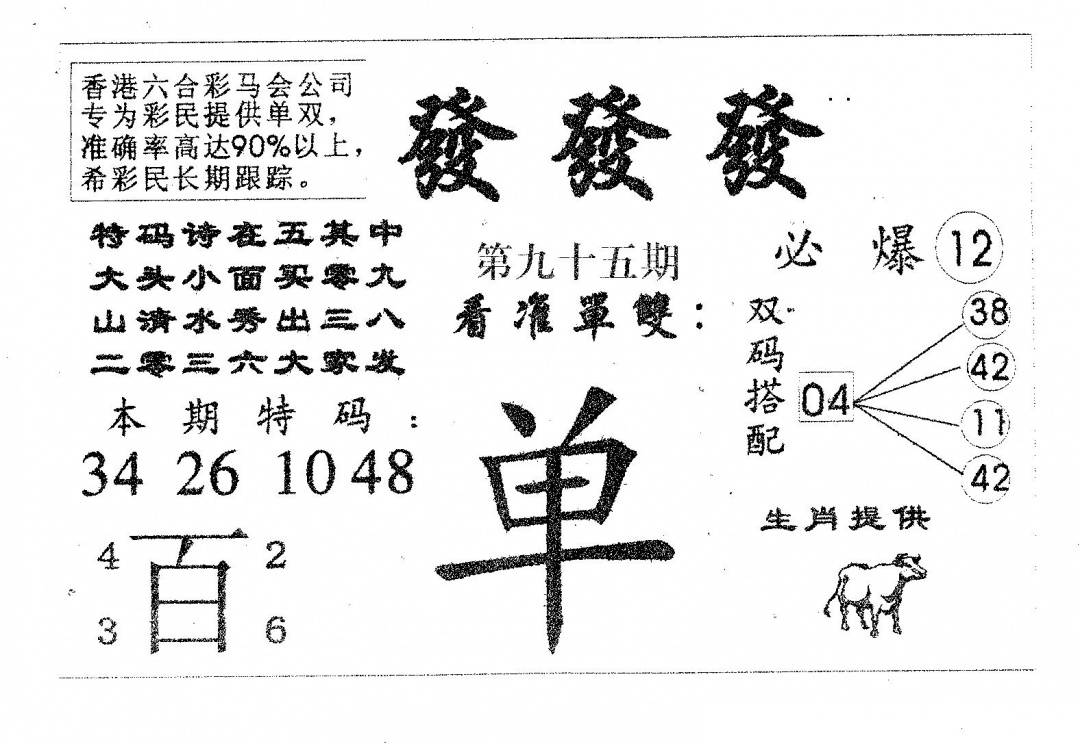 香港六合彩马会公司
专为彩民提供单双，
准确率高达90%以上，
希彩民长期跟踪。
發 發 發
特码诗在五其中
大头小面买零九
山清水秀出三八
二零三六大家发
第九十五期
看准單雙：
必 爆 12
双码搭配
04
38
42
11
42
本期特码：
34 26 10 48
单
4 百 2
3 6
生肖提供